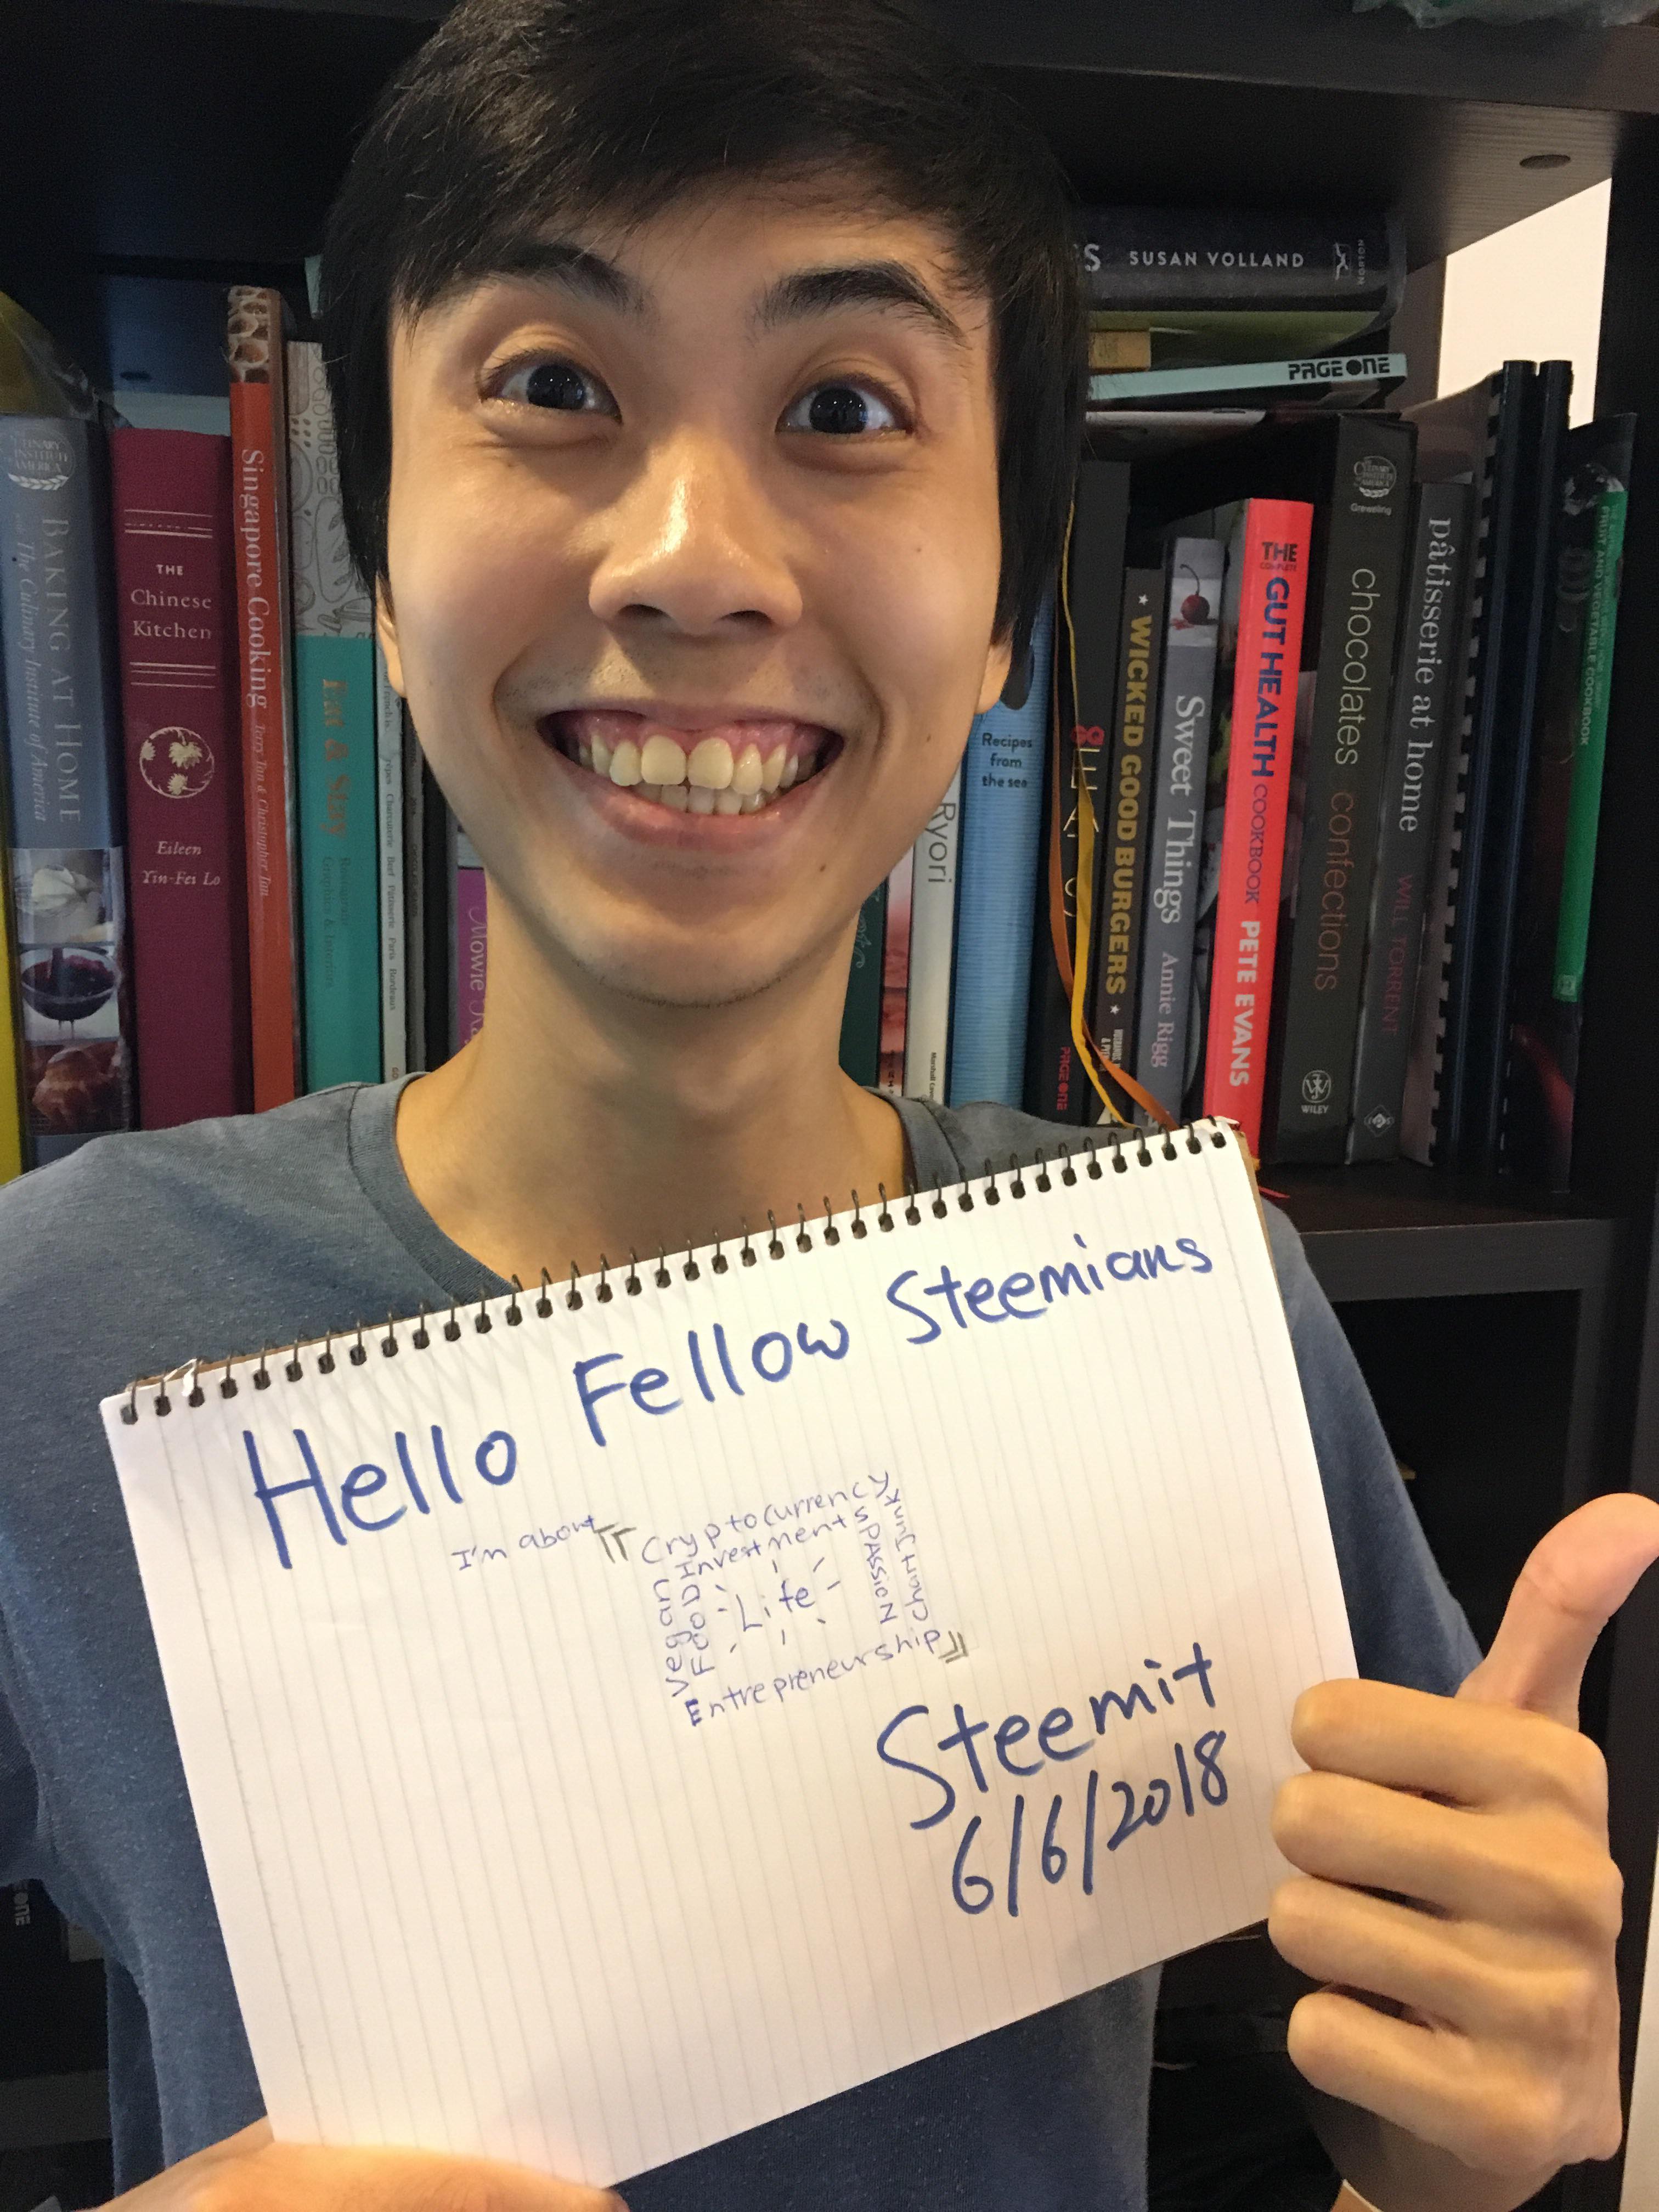 SUSAN VOLLAND
NORTON
PAGE ONE
CULINARY
INSTITUTE
AMERICA
BAKING AT HOME
with The Culinary Institute of America
THE
Chinese
Kitchen
Eileen
Yin-Fei Lo
Singapore Cooking Terry Tan & Christopher Tan
Eat & Stay
Restaurant
Graphics & Interiors
Mowie
Ryori
Recipes
from
the sea
★ WICKED GOOD BURGERS ★
PAGE ONE
Sweet Things Annie Rigg
THE
COMPLETE
GUT HEALTH
COOKBOOK
PETE EVANS
Greweling
chocolates confections
WILEY
pâtisserie at home
WILL TORRENT
FRUIT AND VEGETABLE COOKBOOK
Hello Fellow Steemians
I'm about
Cryptocurrency
Investments
Vegan
FooD
Life
PASSioN
Chart Junk
Entrepreneurship
Steemit
6/6/2018